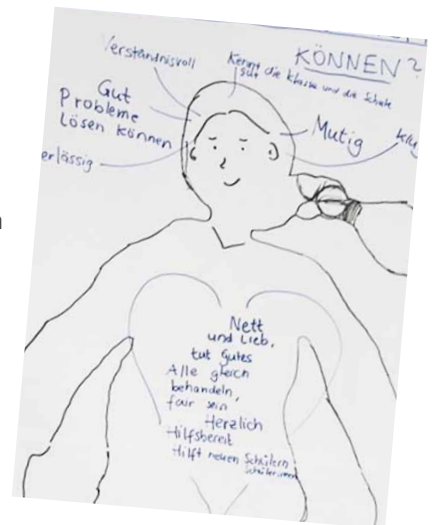 KÖNNEN?
Verständnisvoll
Kennt die Klasse und die Schule
gut
Gut
Probleme
Lösen können
Mutig
klug
erlässig
Nett
und Lieb,
tut gutes
Alle gleich
behandeln,
fair sein
Herzlich
Hilfsbereit
Hilft neuen Schülern
Schülerinnen